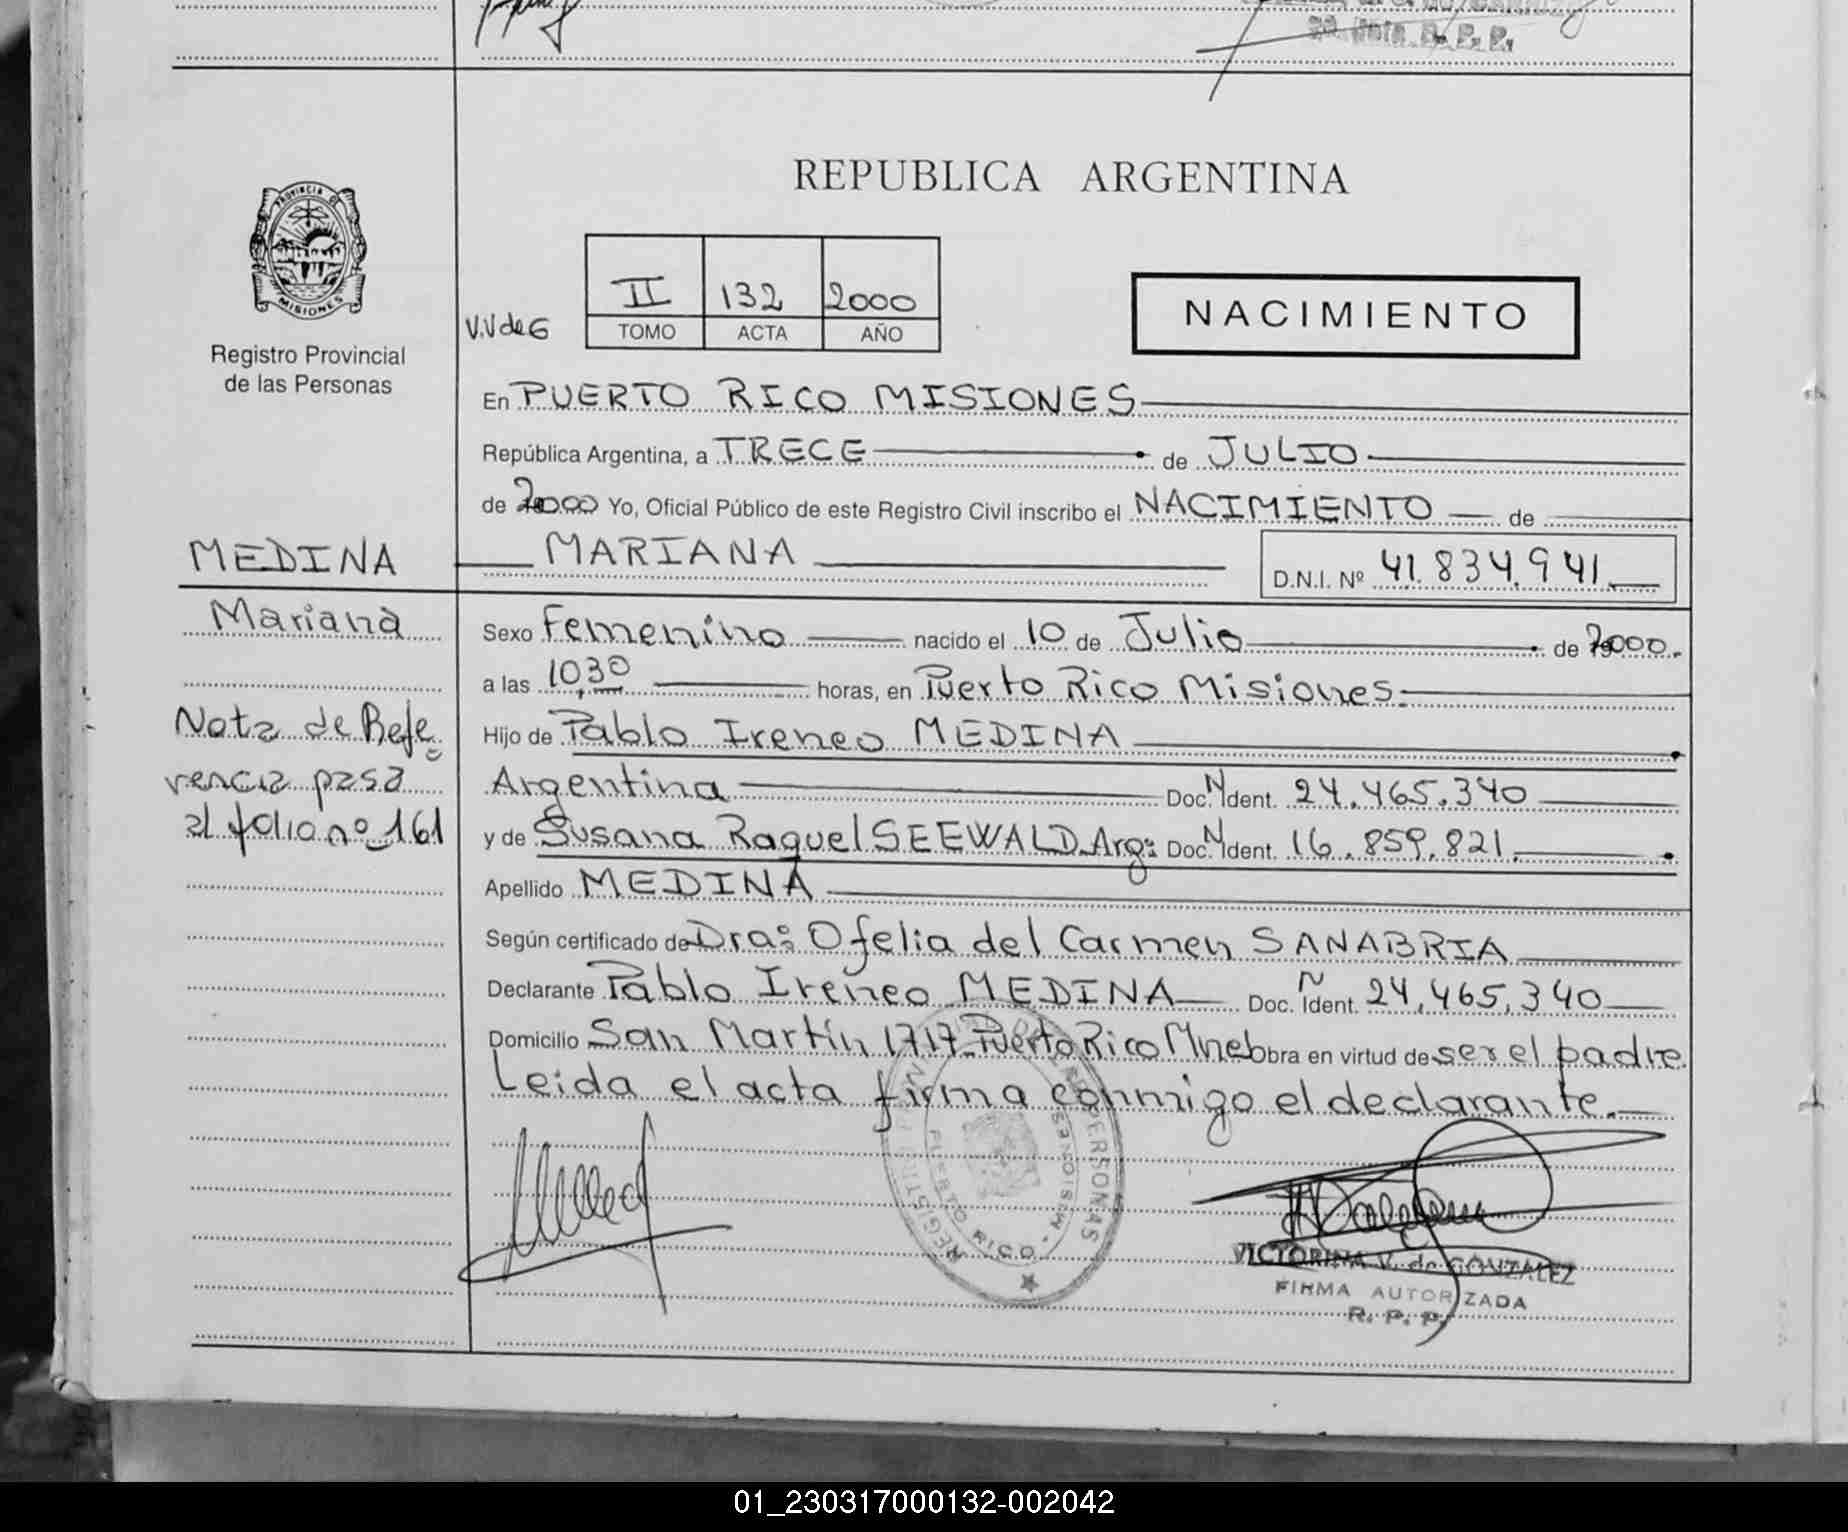 20 Jefa. R. P. P.
REPUBLICA ARGENTINA
PROVINCIA DE
MISIONES
Registro Provincial
de las Personas
V.V de G
II 132 2000
TOMO ACTA AÑO
NACIMIENTO
En PUERTO RICO MISIONES
República Argentina, a TRECE de JULIO
de 2000 Yo, Oficial Público de este Registro Civil inscribo el NACIMIENTO de
MEDINA
MARIANA
D.N.I. Nº 41.834.941
Mariana
Sexo Femenino nacido el 10 de Julio de 2000.
a las 10,30 horas, en Puerto Rico Misiones.
Nota de Refe
rencia pasa
al folio nº 161
Hijo de Pablo Ireneo MEDINA
Argentina Doc. N Ident. 24.465.340
y de Susana Raquel SEEWALD Arg: Doc. N Ident. 16.859.821.
Apellido MEDINA
Según certificado de Dra: Ofelia del Carmen SANABRIA
Declarante Pablo Ireneo MEDINA Doc. N Ident. 24.465.340
Domicilio San Martín 1717 Puerto Rico Mnes obra en virtud de ser el padre
Leida el acta firma conmigo el declarante.
REGISTRO PROVINCIAL DE LAS PERSONAS
PUERTO RICO - MISIONES
VICTORINA V. de GONZALEZ
FIRMA AUTORIZADA
R. P. P.
01_230317000132-002042